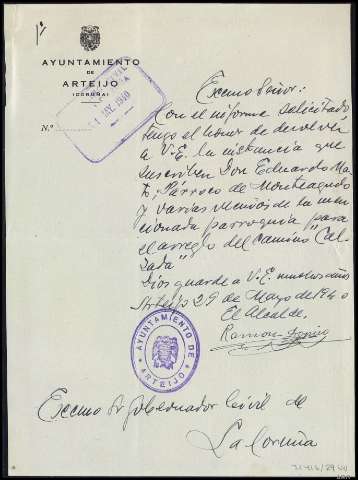 1º
AYUNTAMIENTO
DE
ARTEIJO
(CORUÑA)
Nº
31 MAY. 1940
Excmo Señor:
Con el informe solicitado
tengo el honor de devolver
a V.E. la instancia que
suscriben Don Eduardo
Párroco de Monteagudo
y varios vecinos de la men
cionada parroquia "para
el arreglo del camino "Cal
zada"
Dios guarde a V.E. muchos años
Arteijo 29 de Mayo de 1940
El Alcalde,
Ramon
AYUNTAMIENTO DE
ARTEIJO
Excmo Sr Gobernador Civil de
La Coruña